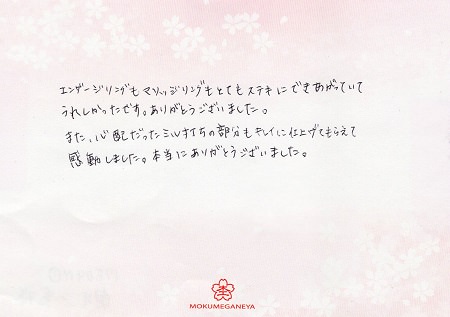 エンゲージリングもマリッジリングもとてもステキにできあがっていて
うれしかったです。ありがとうございました。
また、心配だったミル打ちの部分もキレイに仕上げてもらえて
感動しました。本当にありがとうございました。
MOKUMEGANEYA